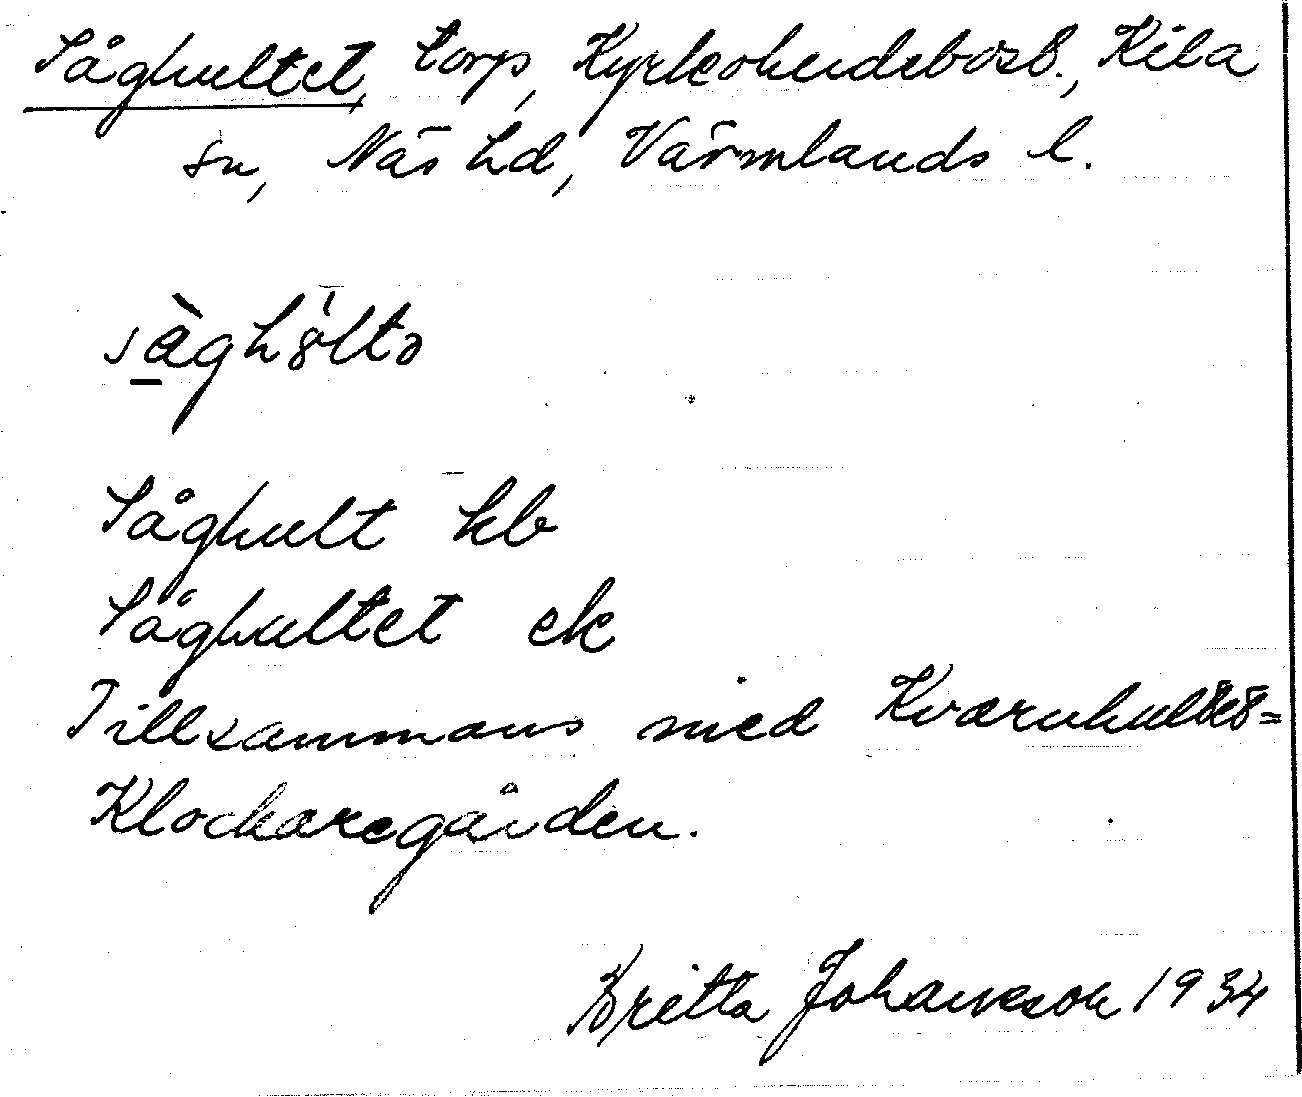 Såghultet, torp, Kyrkoherdebost., Kila
sn, Näs hd, Värmlands l.
så̀ghö́ltə
Såghult kb
Såghultet ek
Tillsammans med Kvarnhultet=
Klockaregården.
Britta Johansson 1934